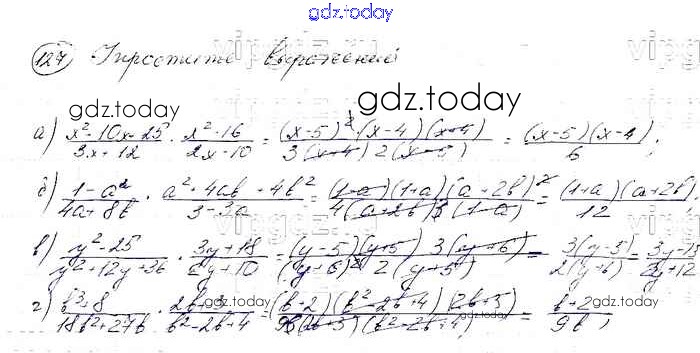 gdz.today
127 Упростите выражений
gdz.today
а) (x²-10x+25)/(3x+12) · (x²-16)/(2x-10) = ((x-5)²·(x-4)(x+4))/(3(x+4)2(x-5)) = ((x-5)(x-4))/6;
б) (1-a²)/(4a+8b) · (a²+4ab+4b²)/(3-3a) = ((1-a)(1+a)(a+2b)²)/(4(a+2b)3(1-a)) = ((1+a)(a+2b))/12;
в) (y²-25)/(y²+12y+36) · (3y+18)/(2y+10) = ((y-5)(y+5)3(y+6))/((y+6)²2(y+5)) = (3(y-5))/(2(y+6)) = (3y-15)/(2y+12)
г) (b³+8)/(18b²+27b) · (2b+3)/(b²-2b+4) = ((b+2)(b²-2b+4)(2b+3))/(9b(2b+3)(b²-2b+4)) = (b+2)/(9b);
gdz.today